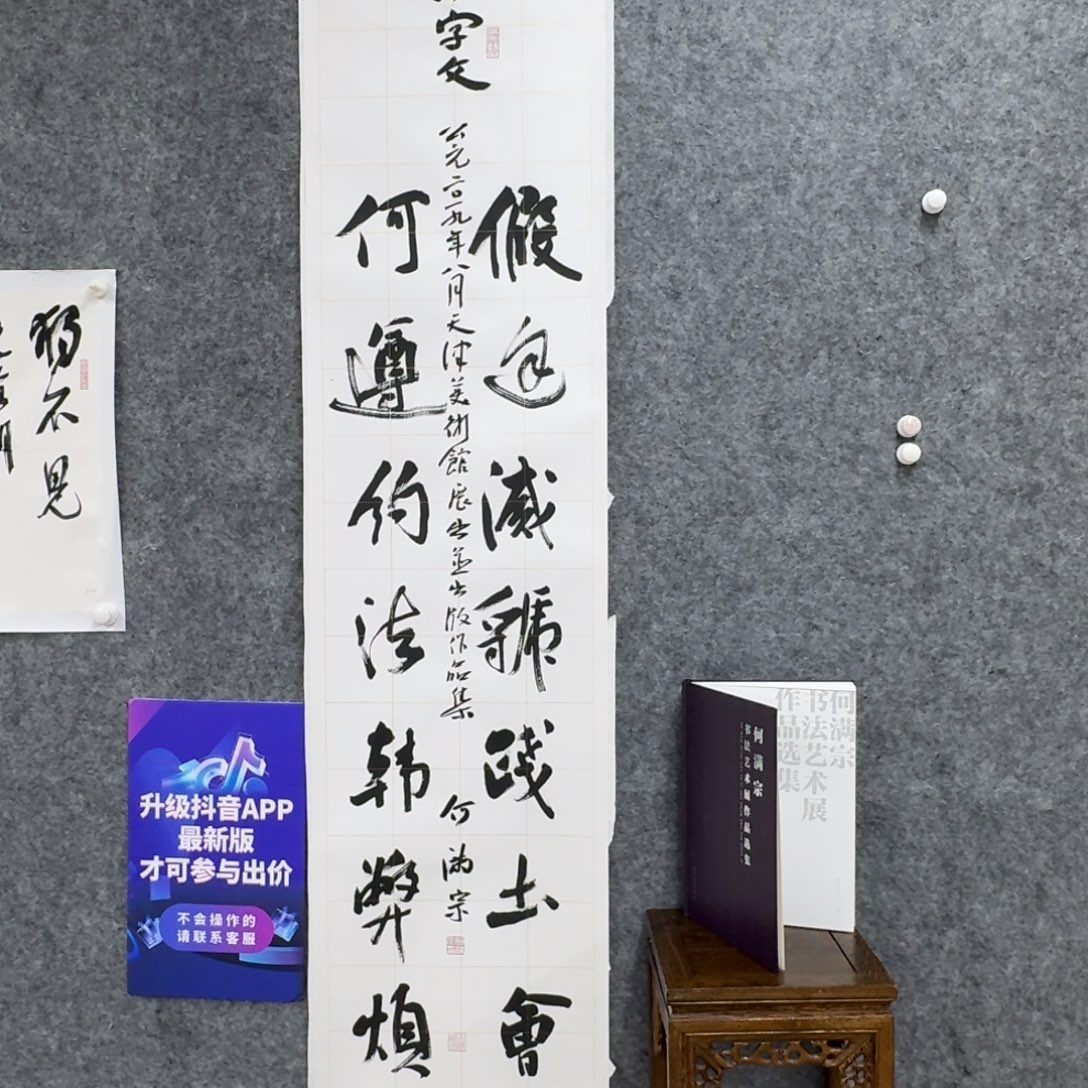 假途滅虢踐土會
何遵約法韓弊煩
字文
公元二〇一九年八月天津美術館展出並出版作品集
何滿宗
獨不見
升级抖音APP
最新版
才可参与出价
不会操作的
请联系客服
何满宗
书法艺术展作品选集
何满宗
书法艺术展
作品选集